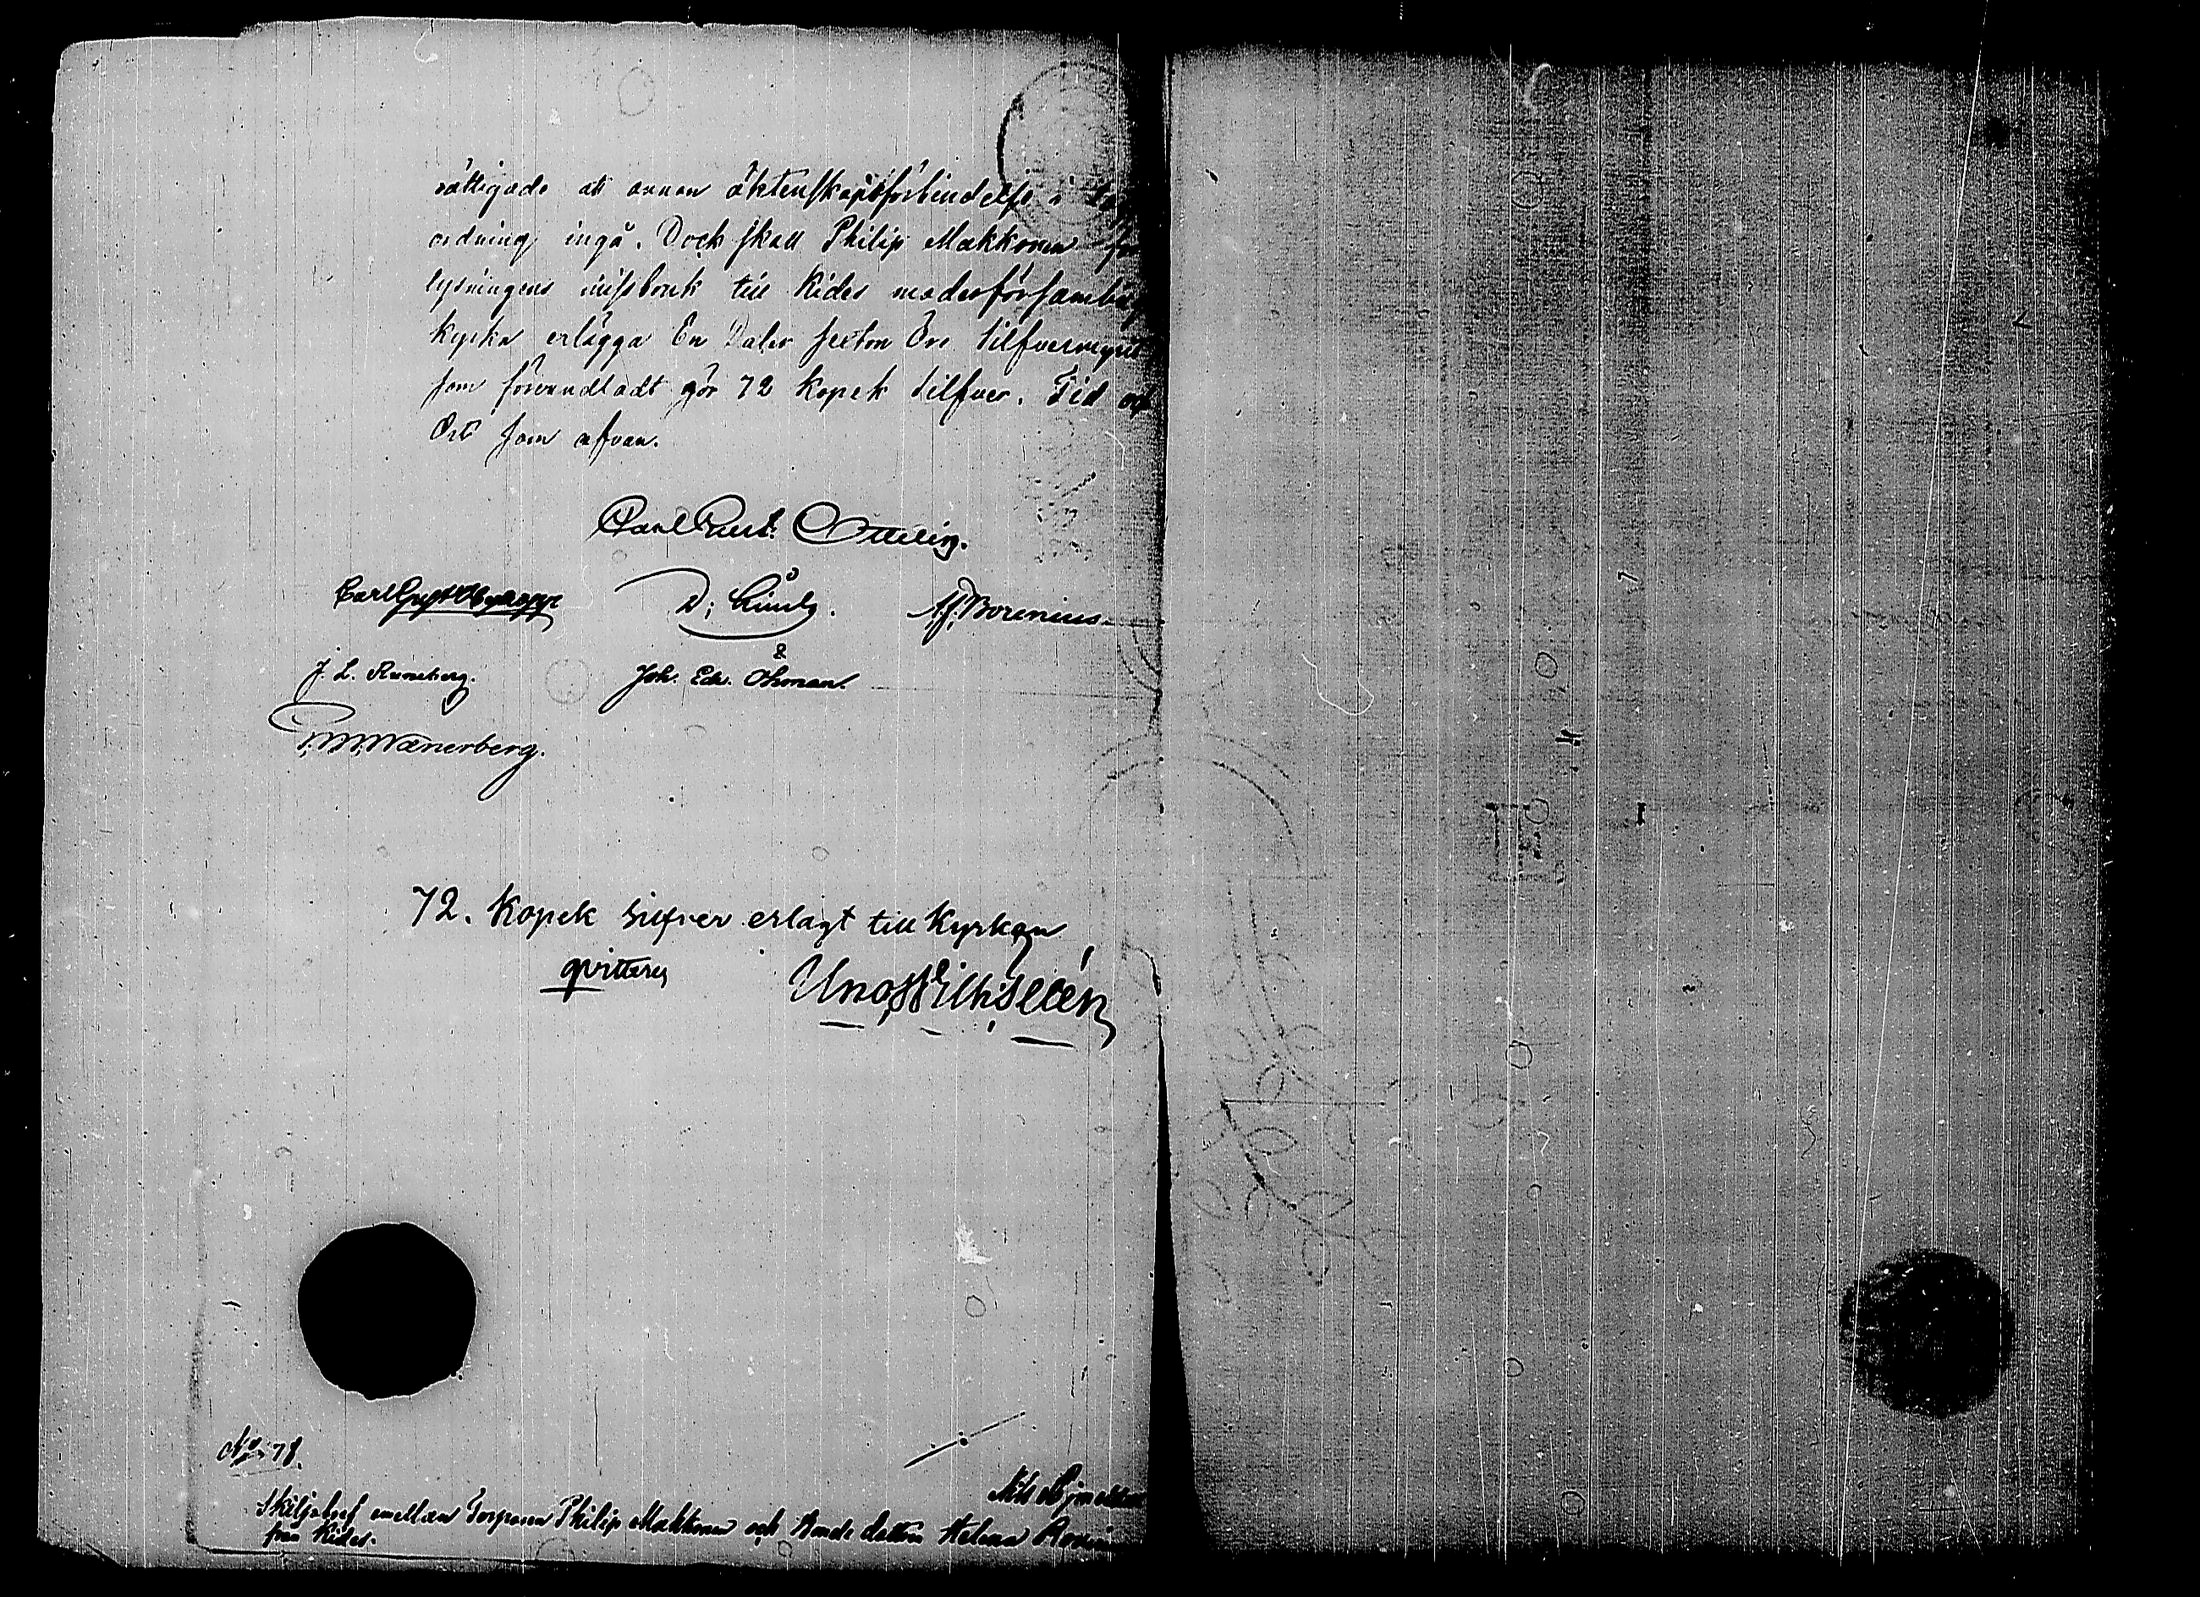 rättigade att annan äktenskapsförbindelse i
ordning ingå. Dock skall Philip Makkonen för
lysningens missbruk till Kides moderförsamlings
kyrka erlägga En Daler sexton Öre Silfvermynt
som förvandladt gör 72 Kopek Silfver. Tid och
Ort som ofvan.
Carl Gust. Ottelin.
D.
A. J. Borenius.
J. L. Runeberg.
Joh. Edv. Öhman.
Wænerberg.
72. Kopek Silfver erlagt till Kyrkan
qvitteras
Uno Wilh:
No 78.
Skiljobref emellan Torparen Philip Makkonen och Bonde dottren Helena
från Kides.